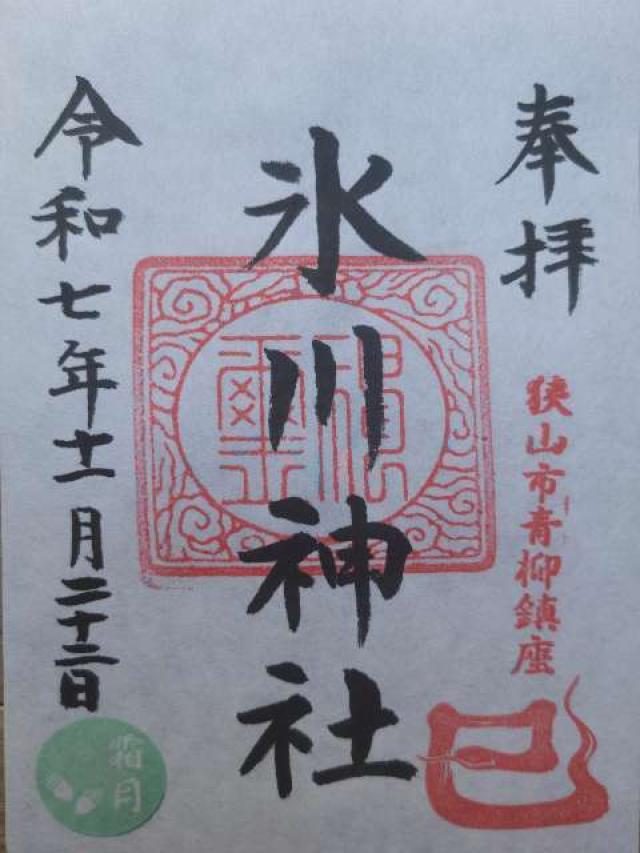 奉拝
狭山市青柳鎮座
巳
氷川神社
令和七年十一月二十二日
霜月